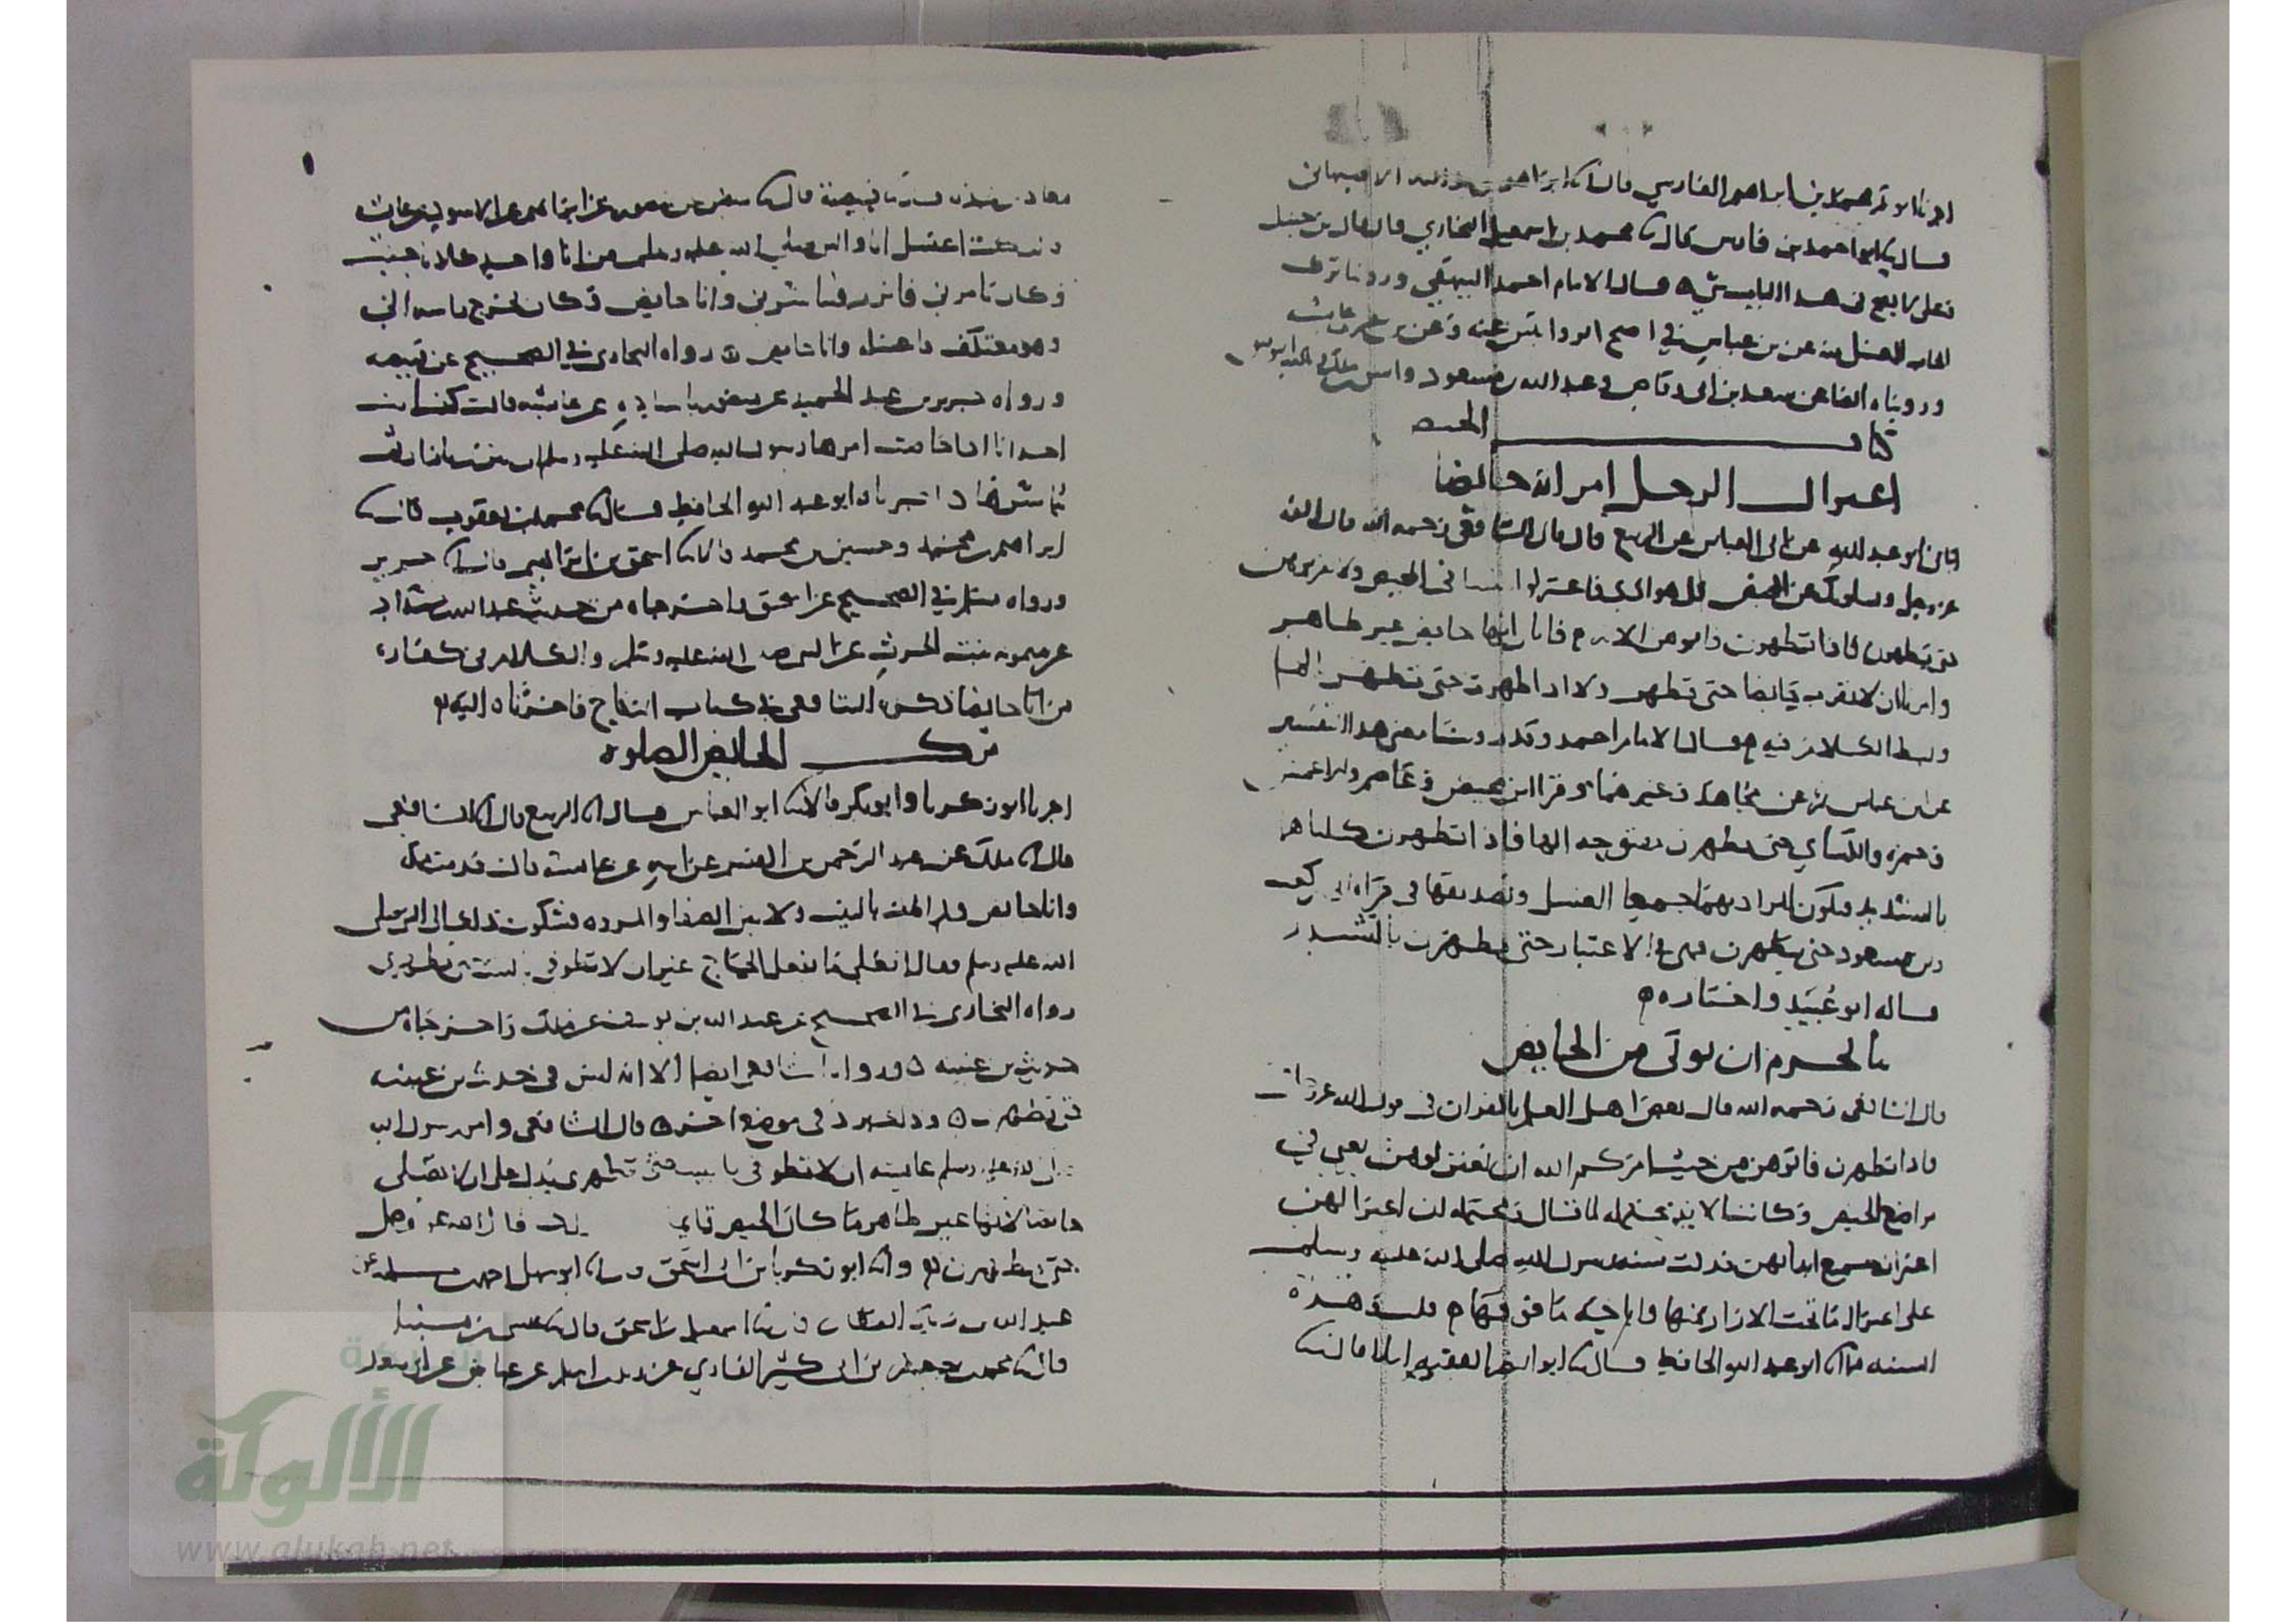 اخبرنا ابو بكر محمد بن ابراهيم الفارسي قال انا ابراهيم بن عبد الله الاصبهاني
قال نا ابو احمد بن فارس قال نا محمد بن اسمعيل البخاري قال قال بن حنبل
وعلي لا يصح في هذا الباب شي ه قال الامام احمد البيهقي وروينا ترك
الغسل منه عن بن عباس في اصح الروايتين عنه وعن بن عمر وعايشه
وروينا ايضا عن سعد بن ابي وقاص وعبد الله بن مسعود وانس بن مالك
كتاب الحيض
اعتزال الرجل امراته حايضا
ابو عبد الله عن ابي العباس عن الربيع قال قال الشافعي رحمه الله قال الله
عز وجل ويسلونك عن المحيض قل هو اذى فاعتزلوا النسا في المحيض ولا تقربوهن
حتى يطهرن فاذا تطهرن فاتوهن الايه فابان انها حايض غير طاهر
وامر ان لا نقرب حايضا حتى تطهر ولا اذا طهرت حتى تتطهر بالما
وبسط الكلام فيه قال الامام احمد وقد روينا معنى هذا التفسير
عن ابن عباس ثم عن مجاهد وغيرهما وقرا ابن محيصن وعاصم والاعمش
وحمزه والكساي حتى يطهرن فاذا تطهرن كلاهما
بالتشديد فيكون المراد بهما جميعا الغسل وتصديقها في قراه ابي بن كعب
وبن مسعود حتى يتطهرن الاعتبار حتى يطهرن بالتشديد
قاله ابو عبيد واختاره ه
ما يحرم ان يوتى من الحايض
قال الشافعي رحمه الله قال بعض اهل العلم بالقران في قول الله عز وجل
فاذا تطهرن فاتوهن من حيث امركم الله ان تعتزلوهن يعني في
مواضع الحيض وكانت الايه محتمله لما قال ومحتمله ان اعتزالهن
اعتزال جميع ابدانهن فدلت سنة رسول الله صلى الله عليه وسلم
على اعتزال ما تحت الازار منها واباحة ما فوقها قلت هذه
السنه فيما انا ابو عبد الله الحافظ قال نا ابو النضر الفقيه املا قال نا
معاذ بن نجده قال نا قبيصة قال نا سفين عن منصور عن ابراهيم عن الاسود عن عايشه
قالت كنت اغتسل انا والنبي صلى الله عليه وسلم من انا واحد كلانا جنب
وكان يامرني فاتزر فيباشرني وانا حايض وكان يخرج راسه الي
وهو معتكف فاغسله وانا حايض ه رواه البخاري في الصحيح عن قبيصه
ورواه جرير بن عبد الحميد عن منصور باسناده عن عايشه قالت كانت
احدانا اذا حاضت امرها رسول الله صلى الله عليه وسلم ان تتزر بازارها
ثم يباشرها اخبرناه ابو عبد الله الحافظ قال نا محمد بن يعقوب قال نا
ابراهيم بن محمد وحسين بن محمد قالا نا اسحق بن ابراهيم قال انا جرير
ورواه مسلم في الصحيح عن اسحق واخرجاه من حديث عبد الله بن شداد
عن ميمونه بنت الحرث عن النبي صلى الله عليه وسلم والكلام في كفارة
من اتا حايضا ذكره الشافعي في كتاب النكاح فاخرناه اليه
ترك الحايض الصلوة
اخبرنا ابو زكريا وابو بكر قالا نا ابو العباس قال انا الربيع قال انا الشافعي
قال انا ملك عن عبد الرحمن بن القسم عن ابيه عن عايشه قالت قدمت مكة
وانا حايض ولم اطف بالبيت ولا بين الصفا والمروه فشكوت ذلك الى النبي صلى
الله عليه وسلم فقال افعلي ما يفعل الحاج غير ان لا تطوفي بالبيت حتى تطهري
رواه البخاري في الصحيح عن عبد الله بن يوسف عن ملك واخرجاه من
حديث بن عيينه ه ورواه الشافعي ايضا الا انه ليس في حديث بن عيينه
حتى تطهري ه وذلك في موضع اخر ه قال الشافعي وامر رسول الله
صلى الله عليه وسلم عايشه ان لا تطوفي بالبيت حتى تطهري يدل على ان لا تصلي
حايضا لانها غير طاهر ما كان الحيض قايم قال الله عز وجل
حتى يطهرن وانا ابو زكريا بن ابي اسحق وانا ابو سهل احمد بن
عبد الله بن زياد القطان قال نا اسمعيل بن اسحق قال نا عيسى بن مينا
قال نا محمد بن جعفر بن ابي كثير القاري عن زيد بن اسلم عن عياض عن ابي سعيد
الألوكة
www.alukah.net